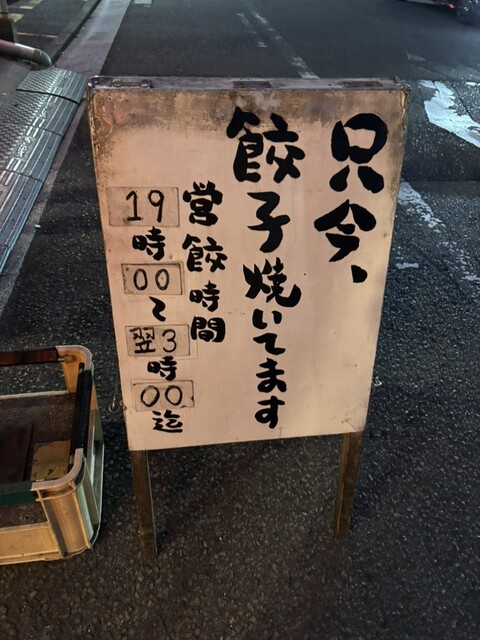 只今、
餃子焼いてます
営餃時間
19時00〜翌3時00迄